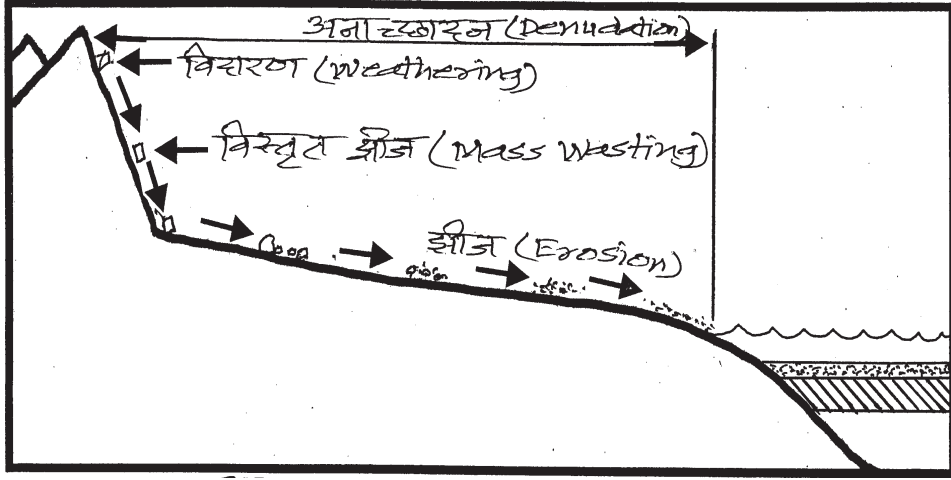 अनाच्छादन (Denudation)
विदारण (Weathering)
विस्तृत झीज (Mass Wasting)
झीज (Erosion)